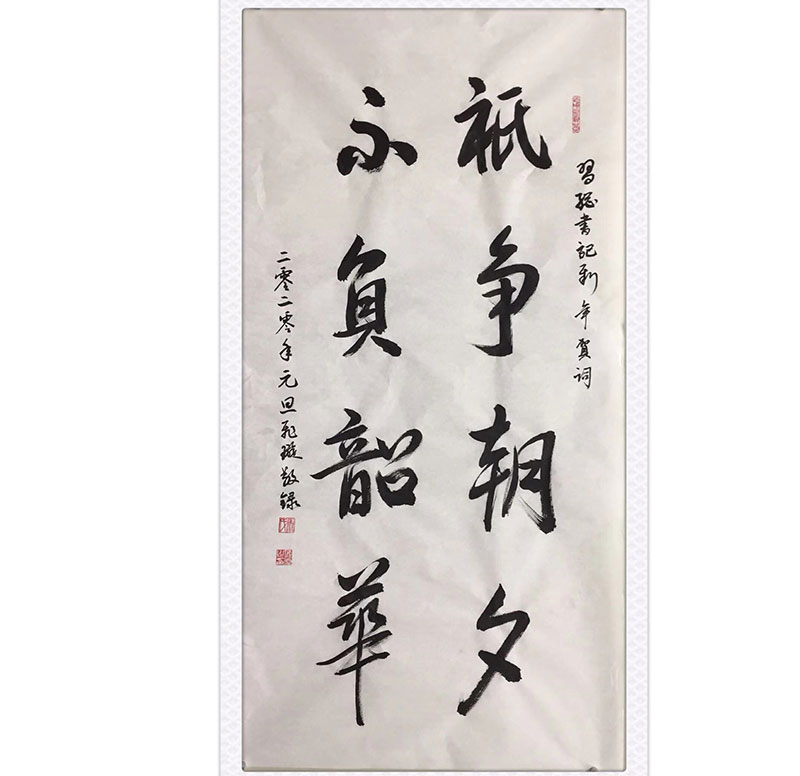 習總書記新年賀詞
祇争朝夕
不負韶華
二零二零年元旦敬録